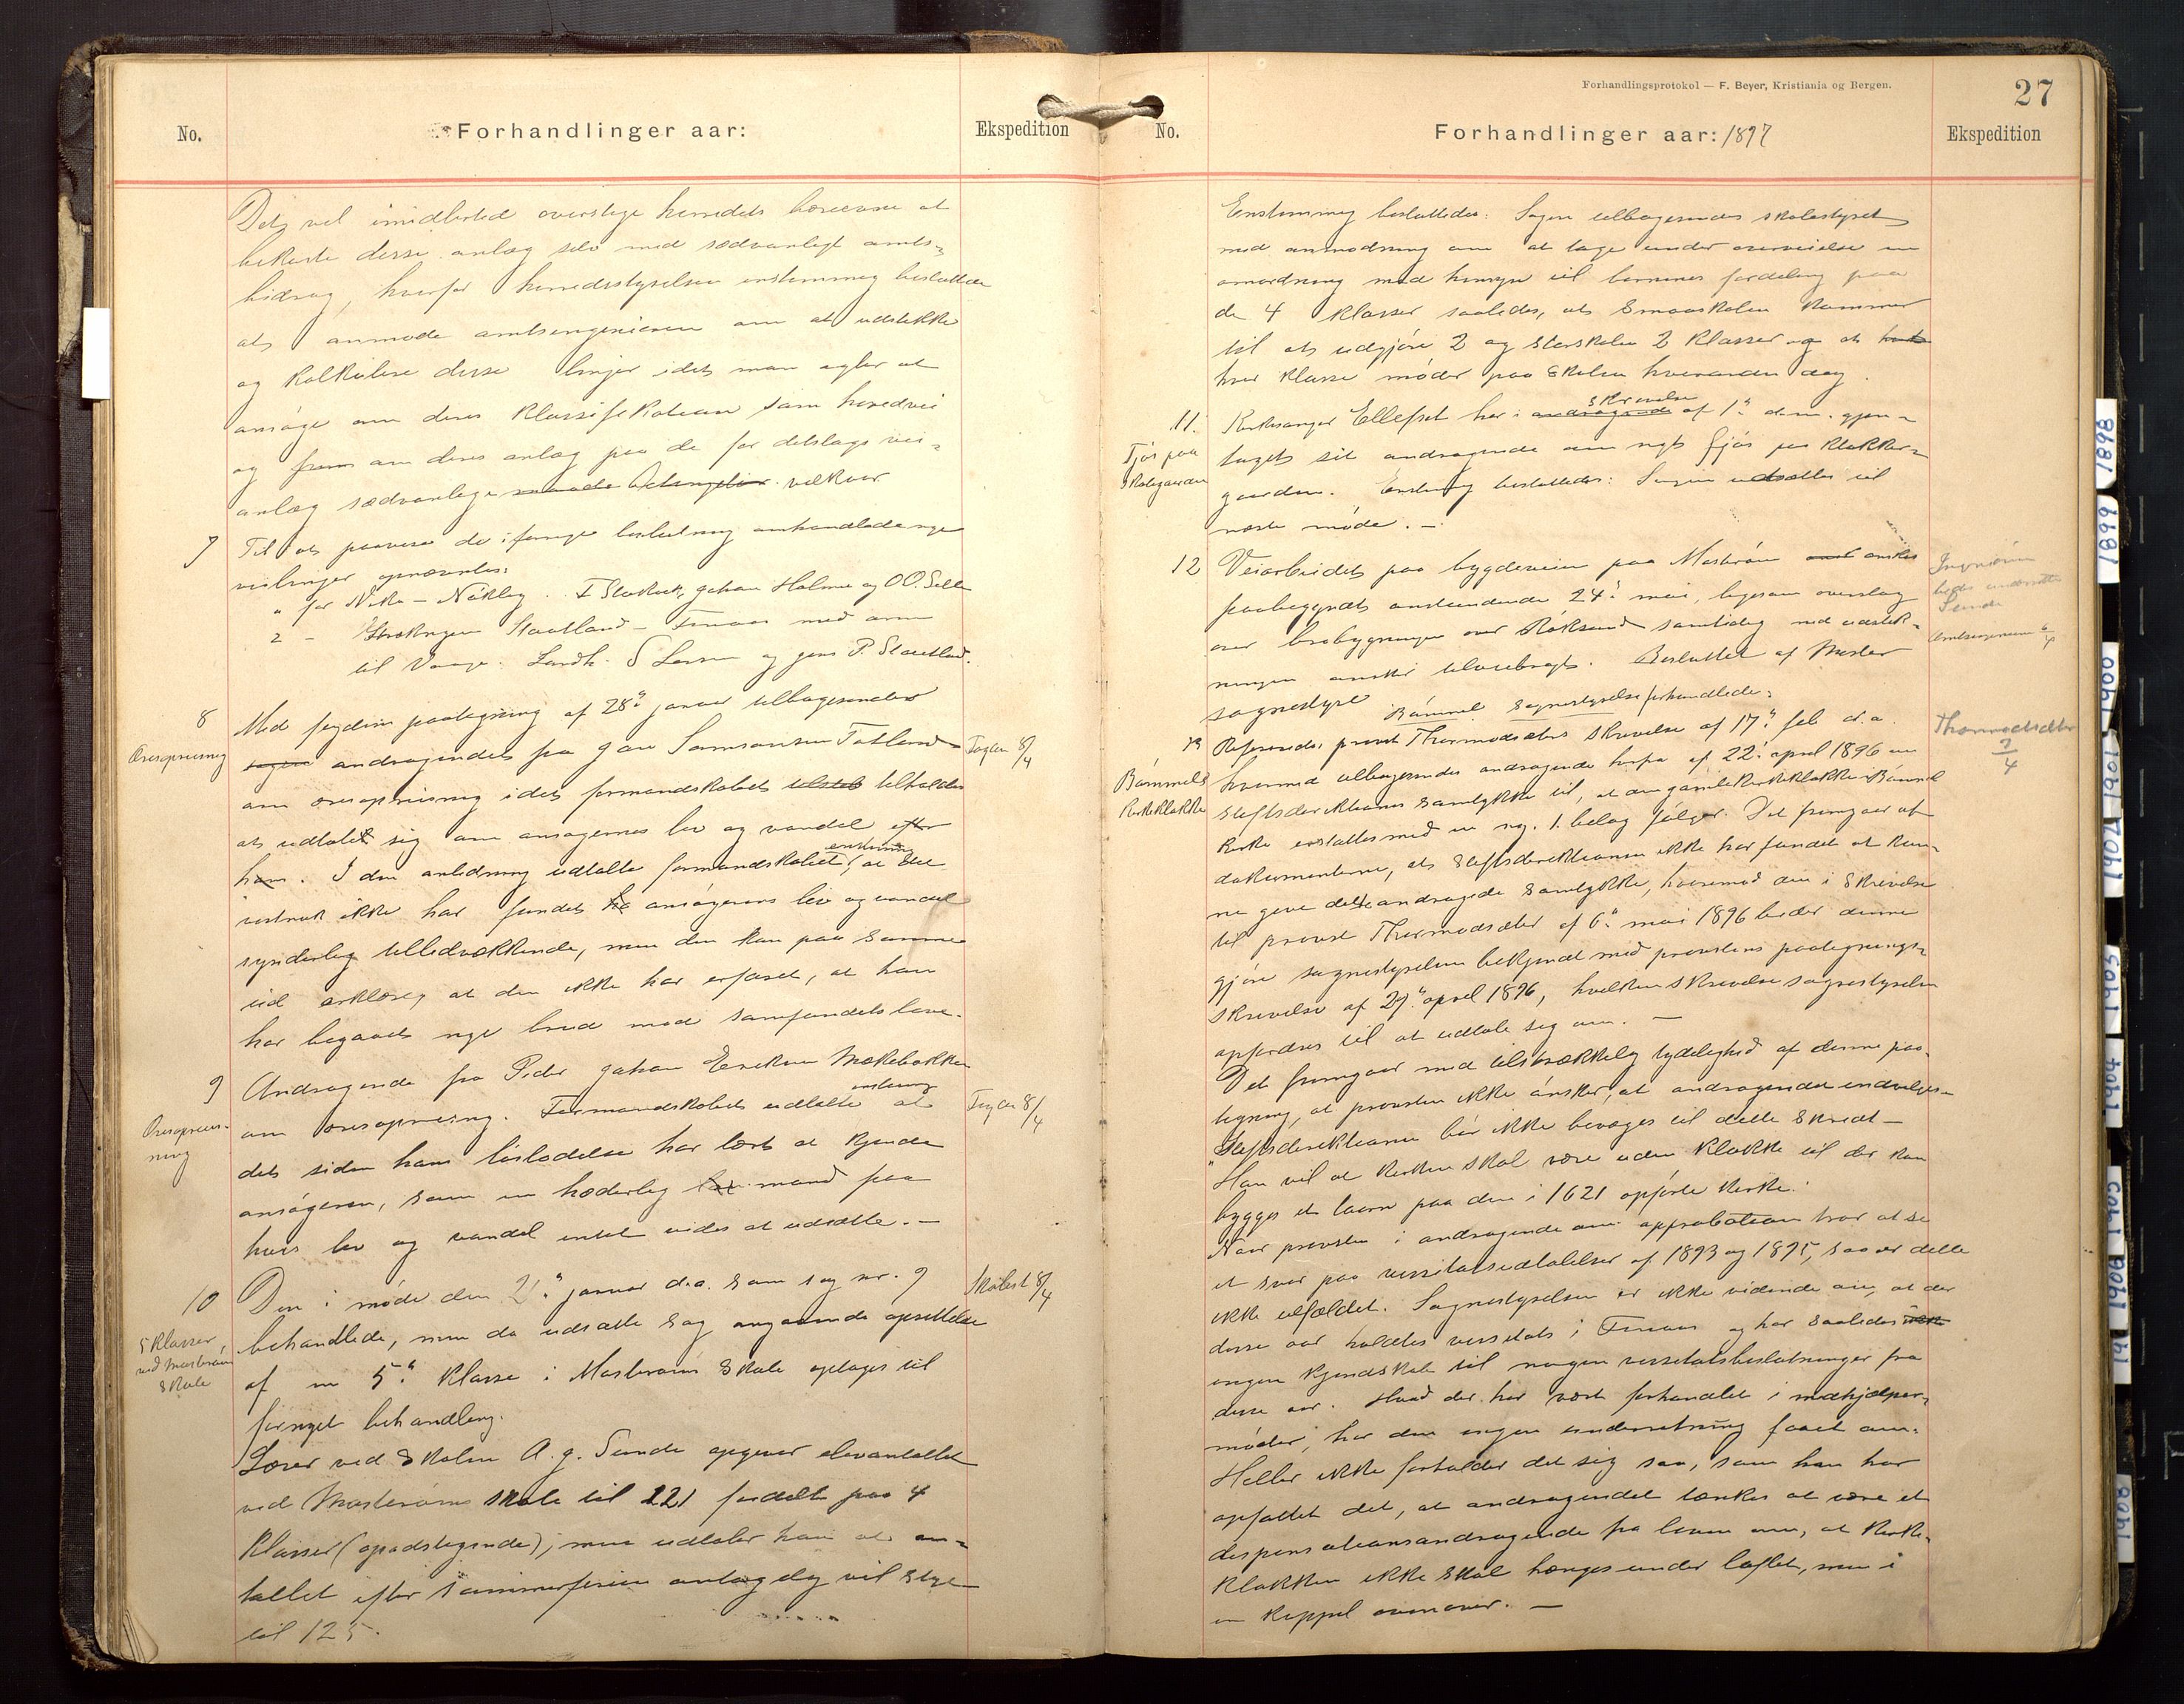 No.
Forhandlinger aar:
Ekspedition
Det vil imidlertid overstige herredets bæreevne at
bekoste disse anlæg selv med sædvanligt amts-
bidrag, hvorfor herredsstyrelsen enstemmig besluttede
at anmode amtsingeniøren om at udstikke
og kalkulere disse linjer idet man agter at
ansøge om deres klassifikation som herredsvei
og frem om deres anlæg paa de for detslags vei-
anlæg sædvanlige vilkaar
7
Til at paavise de i forrige beslutning omhandlede nye
veilinjer opnævntes:
" for Vike - Nökling . T Stokvik, Johan Holme og O O. Selle
2 - Strækningen Staatland - Finaas med arm
til Vaage: Landh. S Larsen og Jens P. Staatland.
8
Æresopreisning
Med fogdens paategning af 28de januar tilbagesendes
sagen andragendet fra Joh Samsonsen Totland
om æresopreisning idet formandskabet tilholdes
at udtale sig om ansøgernes liv og vandel efter
ham. I den anledning udtalte formandskabet enstemmig, at det
vistnok ikke har fundet ansøgerens liv og vandel
synderlig tillidvækkende, men den kan paa samme
tid erklære, at den ikke har erfaret, at han
har begaaet nye brud mod samfundets love.
Fogden 8/4
9
Æresopreis-
ning
Andragende fra Peder Johan Eriksen Mækebakken
om æresopreisning. Formandskabet udtalte enstemmig at
det siden hans løsladelse har lært at kjende
ansøgeren, som en hæderlig mand paa
hvis liv og vandel intet vides at udsætte. -
Fogden 8/4
10
5 klasser
ved Mosterøens
skole
Den i møde den 21de januar d.a. som sag nr. 9
behandlede, men da udsatte sag angaaende oprettelse
af en 5te klasse i Mosterøens skole optages til
fornyet behandling.
Lærer ved skolen A. J. Sunde opgiver elevantallet
ved Mosterøens skole til 121 fordelt paa 4
klasser (opadstigende); men udtaler han at an-
tallet efter sommerferien antagelig vil stige
til 125.
Skolest 8/4
Forhandlingsprotokol — F. Beyer, Kristiania og Bergen.
27
No.
Forhandlinger aar: 1897
Ekspedition
Enstemmig besluttedes: Sagen tilbagesendes skolestyret
med anmodning om at tage under overveielse en
omordning med hensyn til børnenes fordeling paa
de 4 klasser saaledes, at Smaaskolen kommer
til at udgjøre 2 og storskolen 2 klasser og at
hver klasse møder paa skolen hverandre dag.
11.
Fjøs paa
skolegaarden
Kirkesanger Ellefset har i andragende skrivelse af 1ste d.m. gjen-
taget sit andragende om nyt fjøs paa klokker-
gaarden. Enstemmig besluttedes: Sagen udsættes til
næste møde. -
12
Veiarbeidet paa bygdeveien paa Mosterøen ønskes
paabegyndt anstundende 24de mai, ligesom overslag
over brobygningen over Røksund samtidig med udstik-
ningen ønskes tilveiebragt. Besluttet af Moster
sognestyre
Ingeniøren
bedes underrette
Sunde
Amtsingeniøren 6/4
Bømmel Sognestyrelse forhandlede:
13
Bømmels
Kirkeklokke
Refereredes provst Thormodsæters skrivelse af 17de feb d.a.
hvormed tilbagesendes andragende herfra af 22de april 1896 om
stiftsdirektionens samtykke til, at den gamle kirkeklokke i Bømmel
kirke erstattes med en ny. 1. belag følger. Det fremgaar af
dokumenterne, at stiftsdirektionen ikke har fundet at kun-
ne give det andragede samtykke, hvorimod den i skrivelse
til provst Thormodsæter af 6te mai 1896 beder denne
gjøre sognestyrelsen bekjendt med provstens paategnings-
skrivelse af 29de april 1896, hvilken skrivelse sognestyrelsen
opfordres til at udtale sig om. -
Det fremgaar med tilstrækkelig tydelighed af denne paa-
tegning, at provsten ikke ønsker, at andragendet indvilges.
"Stiftsdirektionen bør ikke bevæges til dette skridt -
Han vil at kirken skal være uden klokke til der kan
bygges et taarn paa den i 1621 opførte kirke."
Naar provsten i andragende om approbation tror at se
et svar paa visitatsudtalelser af 1893 og 1895, saa er dette
ikke tilfældet. Sognestyrelsen er ikke vidende om, at der
disse aar holdtes visitats i Finaas og har saaledes
ingen kjendskab til nogen visitatsbeslutninger fra
disse aar. Hvad der har været forhandlet i medhjælper-
møder, har den ingen underretning faaet om.
Heller ikke forholder det sig saa, som han har
opfattet det, at andragendet tænkes at være et
dispensationsandragende fra loven om, at kirke-
klokken ikke skal hænges under loftet, men i
en kuppel ovenover. -
Thormodsæter
7/4
1898
1899
1900
1901
1902
1903
1904
1905
1906
1908